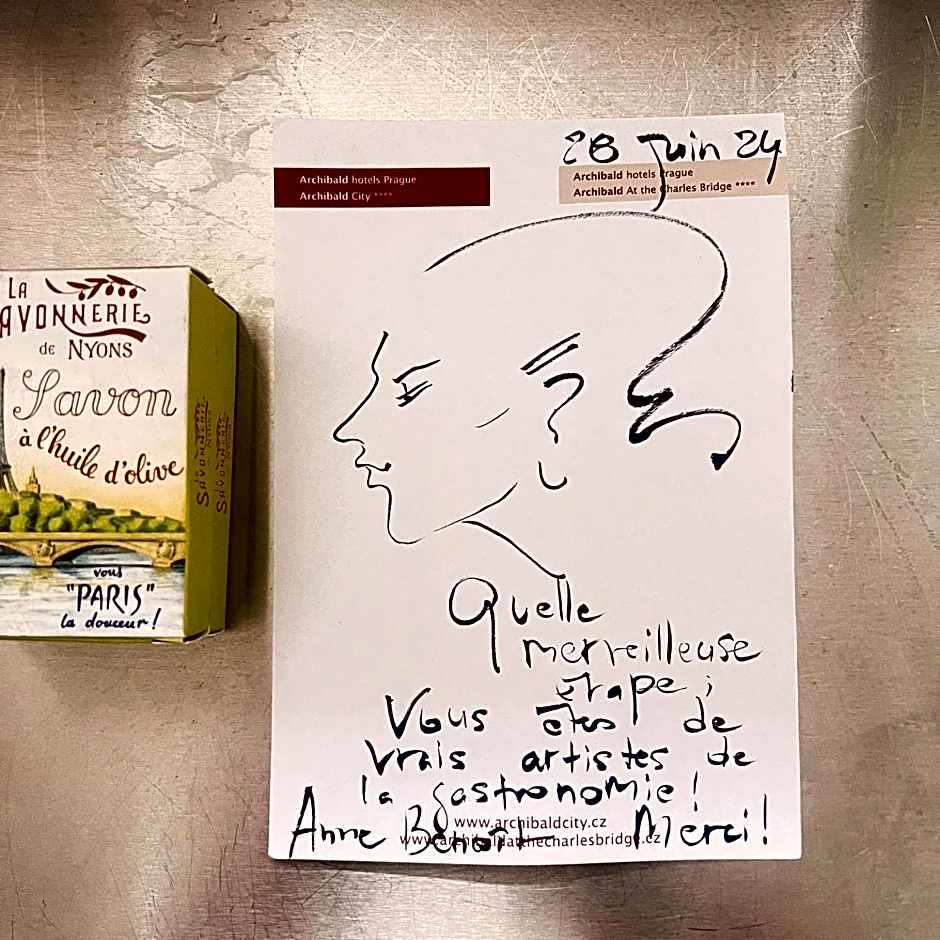 LA
SAVONNERIE
de NYONS
Savon
à l'huile d'olive
vous
"PARIS"
la douceur!
SAVONNERIE
NYONS
SAVONNERIE
NYONS
28 Juin 24
Archibald hotels Prague
Archibald City ****
Archibald hotels Prague
Archibald At the Charles Bridge ****
Quelle
merveilleuse
étape ;
Vous êtes de
vrais artistes de
la gastronomie !
Anne Benoît Merci !
www.archibaldcity.cz
www.archibaldatthecharlesbridge.cz